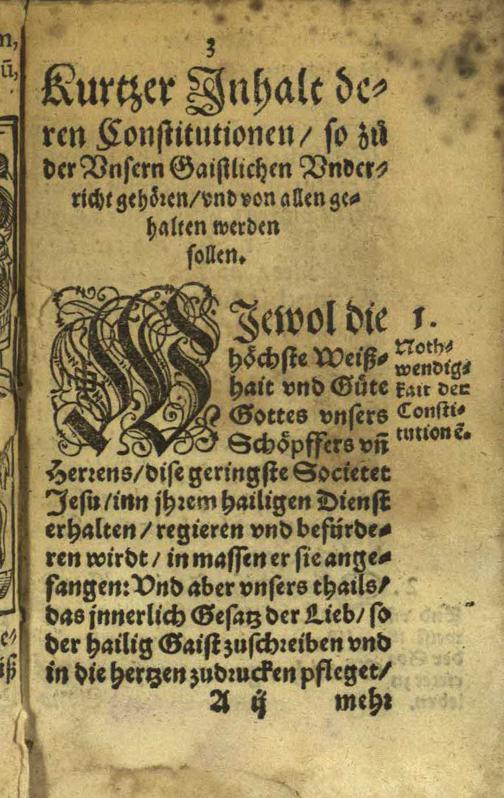 3
Kurtzer Jnhalt de⸗
ren Constitutionen/ so zů
der Vnsern Gaistlichen Vnder⸗
richt gehören/vnd von allen ge⸗
halten werden
sollen.
WJewol die
höchste Weiß⸗
hait vnd Güte
Gottes vnsers
Schöpffers vñ
Herrens/dise geringste Societet
Jesu/inn jhrem hailigen Dienst
erhalten/ regieren vnd befürde⸗
ren wirdt/ in massen er sie ange⸗
fangen: Vnd aber vnsers thails/
das jnnerlich Gesatz der Lieb/ so
der hailig Gaist zuschreiben vnd
in die hertzen zudrucken pfleget/
A ij mehr
1.
Noth⸗
wendig⸗
kait der
Consti⸗
tutionẽ.